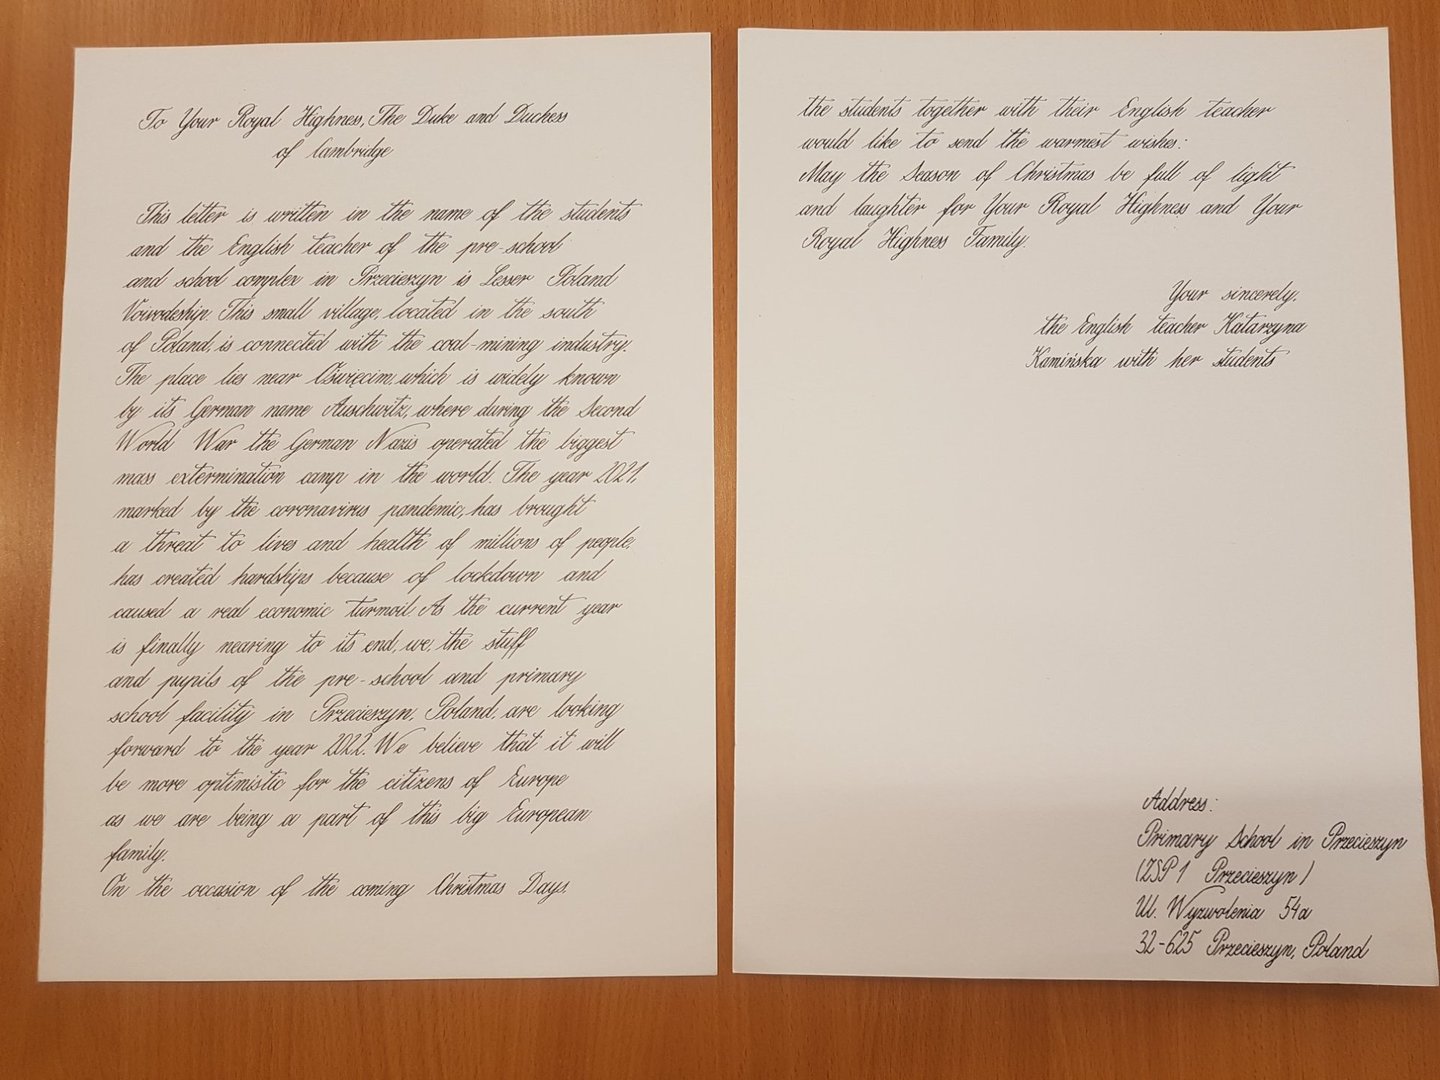 To Your Royal Highness, The Duke and Duchess
of Cambridge
This letter is written in the name of the students
and the English teacher of the pre-school
and school complex in Przecieszyn is Lesser Poland
Voivodeship. This small village, located in the south
of Poland, is connected with the coal-mining industry.
The place lies near Oświęcim, which is widely known
by its German name Auschwitz, where during the Second
World War the German Nazis operated the biggest
mass extermination camp in the world. The year 2021,
marked by the coronavirus pandemic, has brought
a threat to lives and health of millions of people,
has created hardships because of lockdown and
caused a real economic turmoil. As the current year
is finally nearing to its end, we, the stuff
and pupils of the pre-school and primary
school facility in Przecieszyn, Poland, are looking
forward to the year 2022. We believe that it will
be more optimistic for the citizens of Europe
as we are being a part of this big European
family.
On the occasion of the coming Christmas Days,
the students together with their English teacher
would like to send the warmest wishes:
May the Season of Christmas be full of light
and laughter for Your Royal Highness and Your
Royal Highness Family.
Your sincerely,
the English teacher Katarzyna
Kamińska with her students
Address:
Primary School in Przecieszyn
(ZSP 1 Przecieszyn)
Ul. Wyzwolenia 54a
32-625 Przecieszyn, Poland